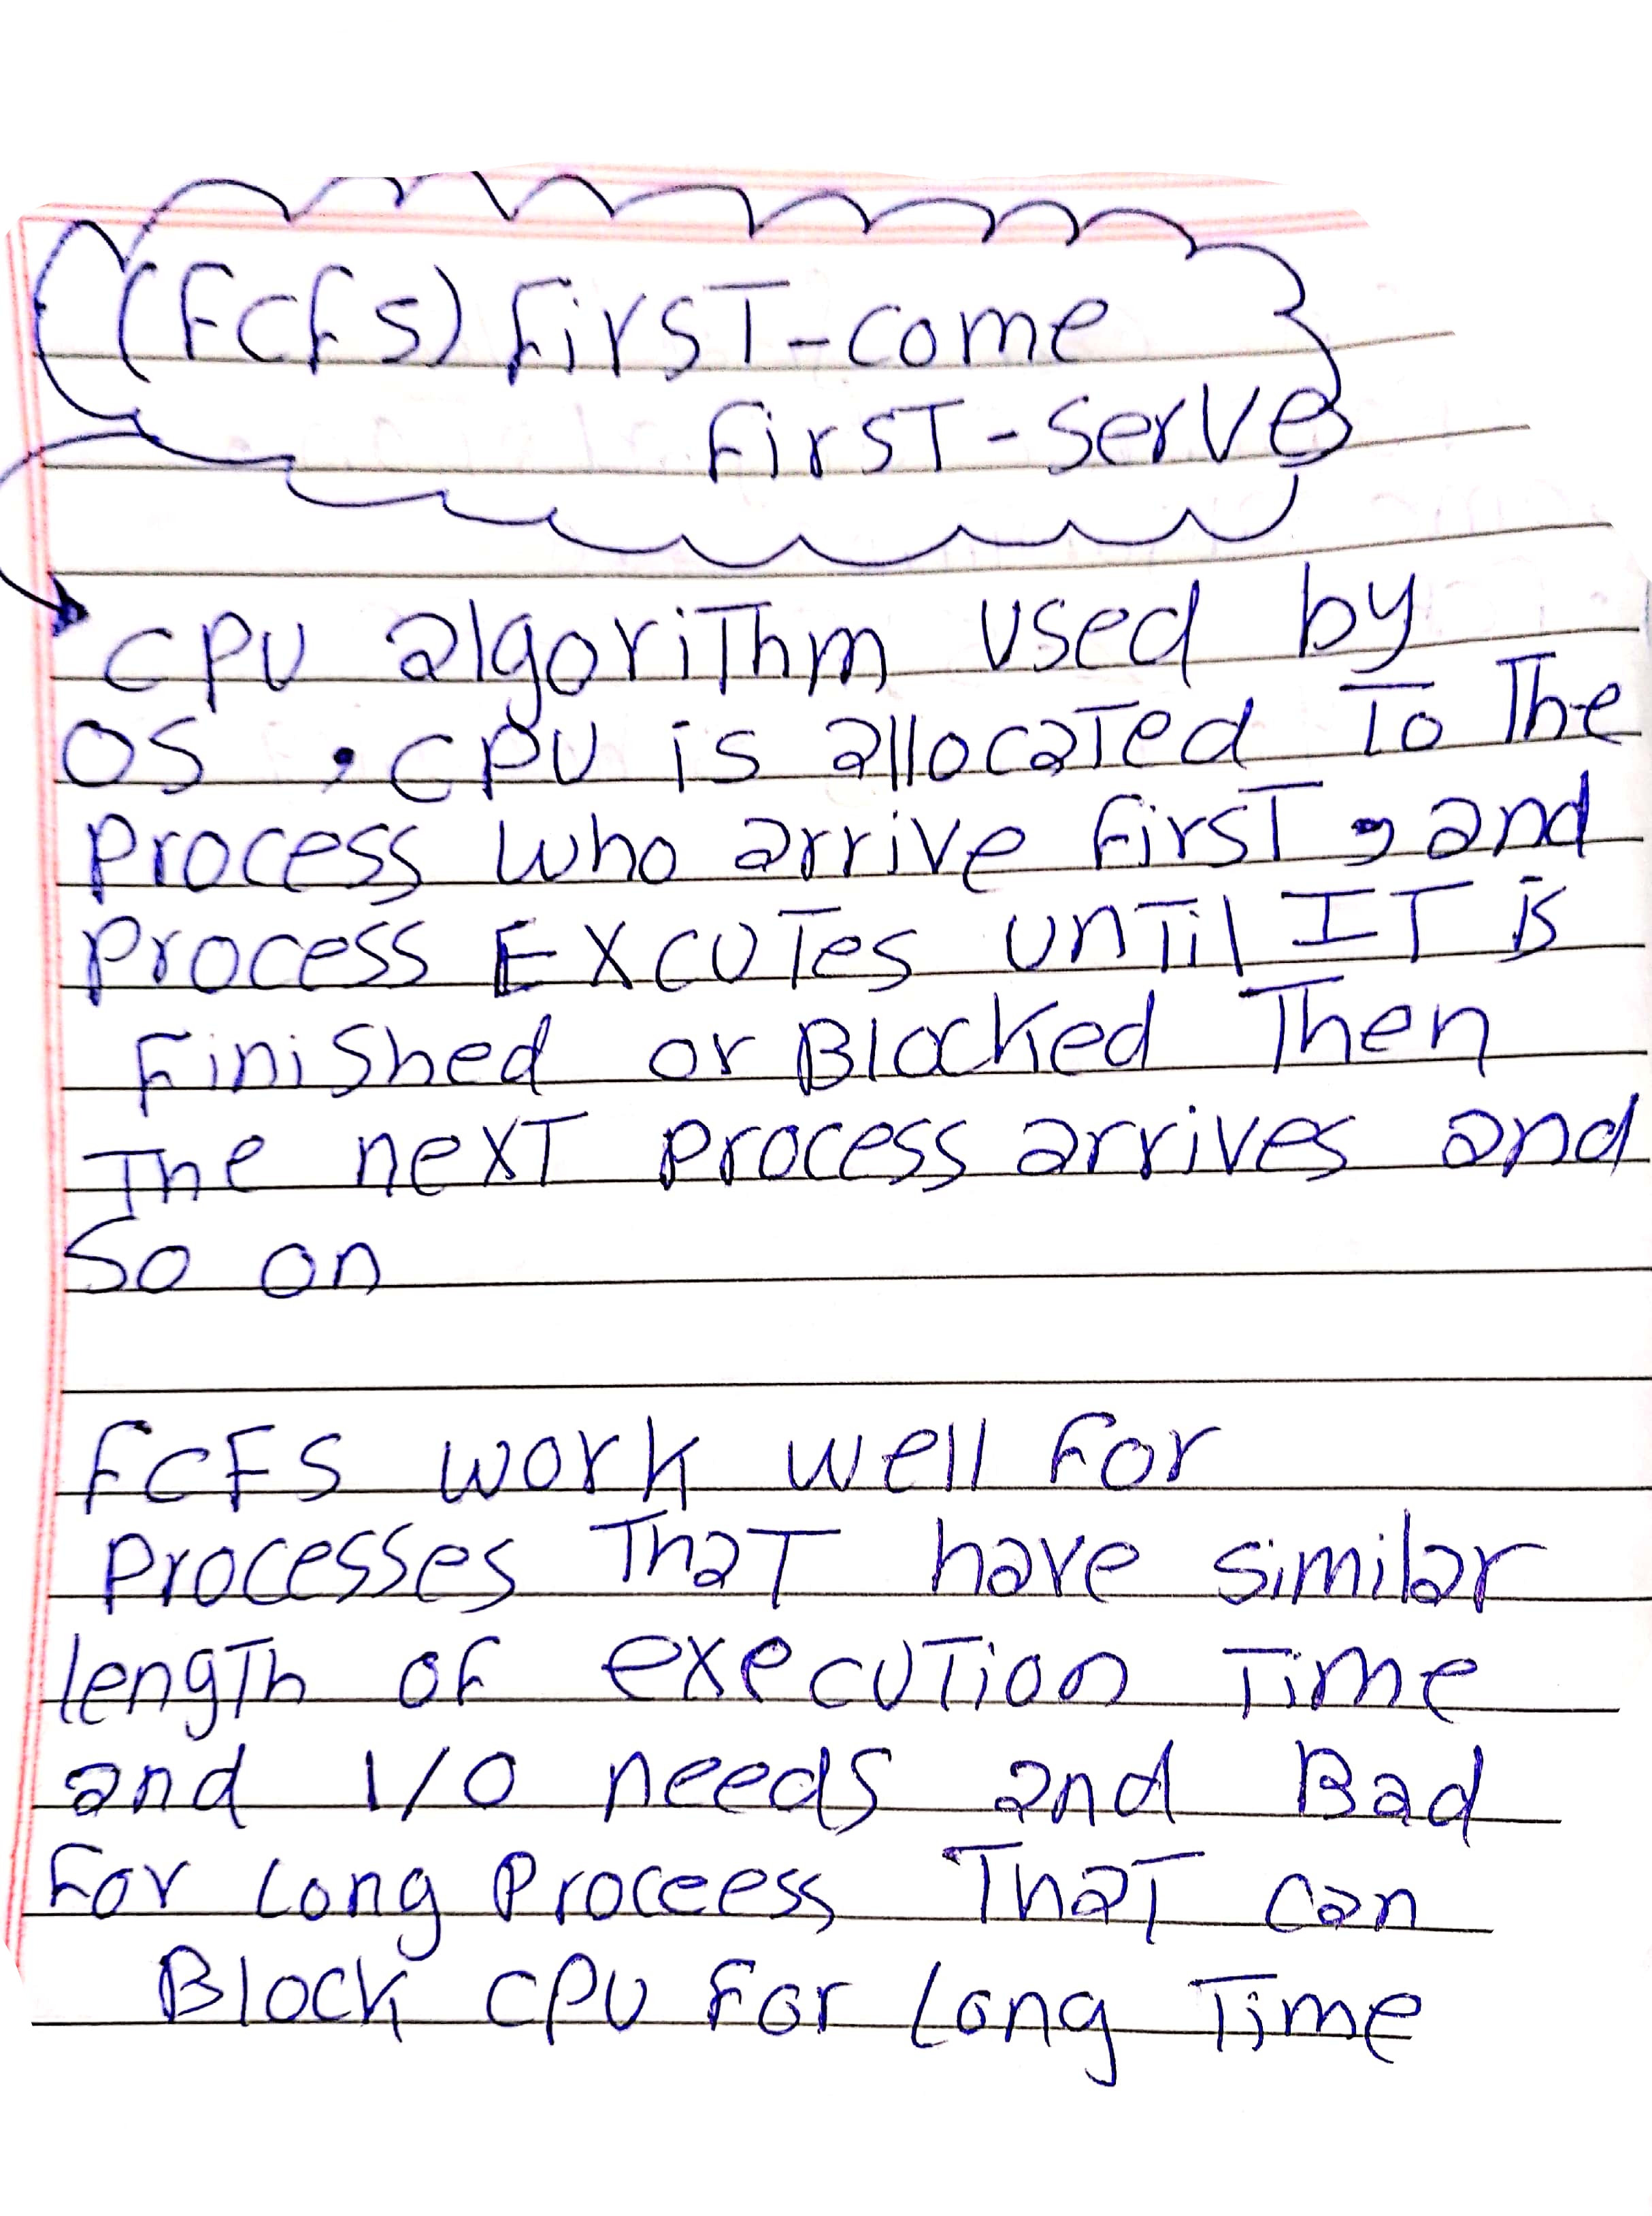 (FCFS) First-come
First-serve
CPU algorithm used by
OS . CPU is allocated To The
Process who arrive first, and
Process Excutes until IT is
Finished or Blocked Then
The next process arrives and
So on
FCFS work well For
Processes That have similar
length of execution Time
and I/O needs and Bad
For Long Proceess That can
Block CPU For Long Time